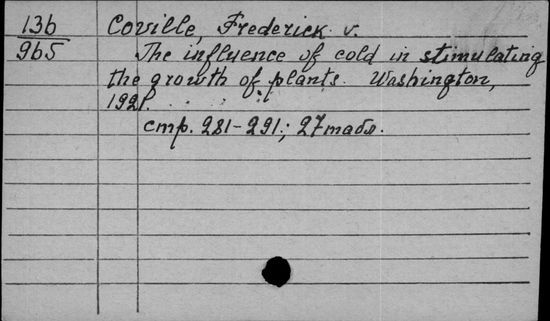 13б Coville, Frederick v.
965 The influence of cold in stimulating
the growth of plants. Washington,
1921.
стр. 281-291.; 27 табл.